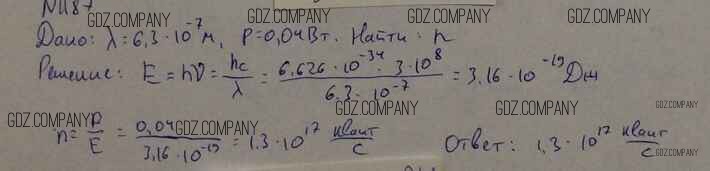 №1187
GDZ.COMPANY GDZ.COMPANY GDZ.COMPANY
Дано: λ = 6,3 · 10⁻⁷ м, P = 0,04 Вт. Найти: n
Решение: E = hν = hc/λ = 6,626 · 10⁻³⁴ · 3 · 10⁸ / 6,3 · 10⁻⁷ = 3,16 · 10⁻¹⁹ Дж
GDZ.COMPANY GDZ.COMPANY GDZ.COMPANY GDZ.COMPANY
n = P/E = 0,04 / 3,16 · 10⁻¹⁹ = 1,3 · 10¹⁷ квант/с Ответ: 1,3 · 10¹⁷ квант/с
GDZ.COMPANY GDZ.COMPANY